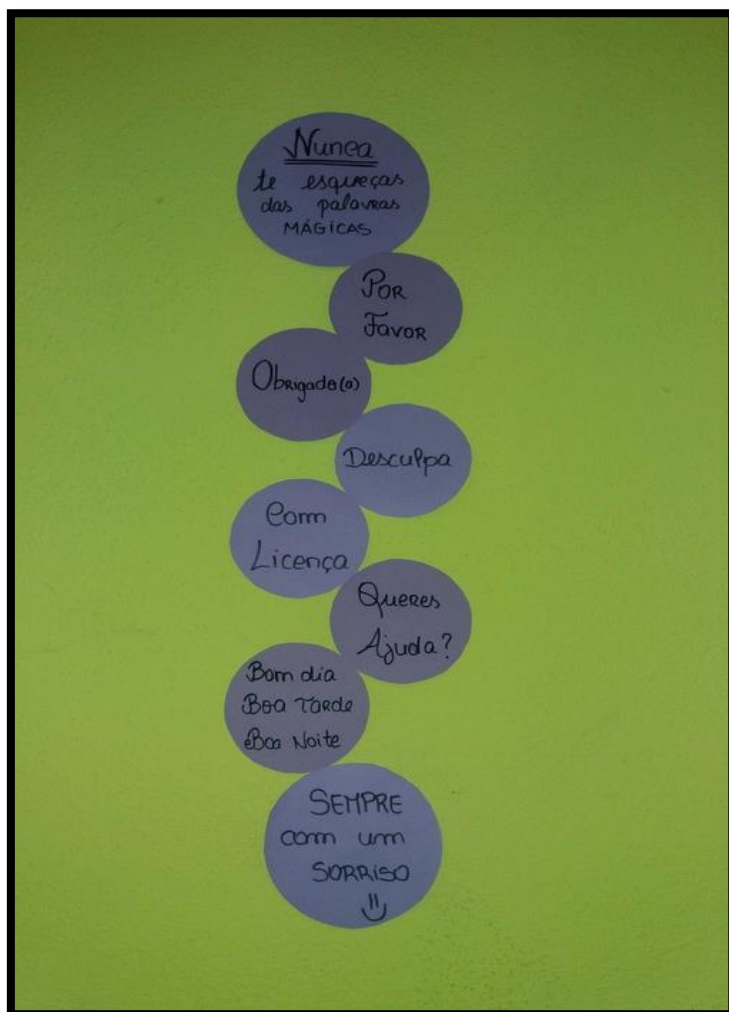 Nunca
te esqueças
das palavras
MÁGICAS
POR
FAVOR
Obrigado(a)
Desculpa
Com
Licença
Queres
Ajuda?
Bom dia
Boa Tarde
Boa Noite
SEMPRE
com um
SORRISO